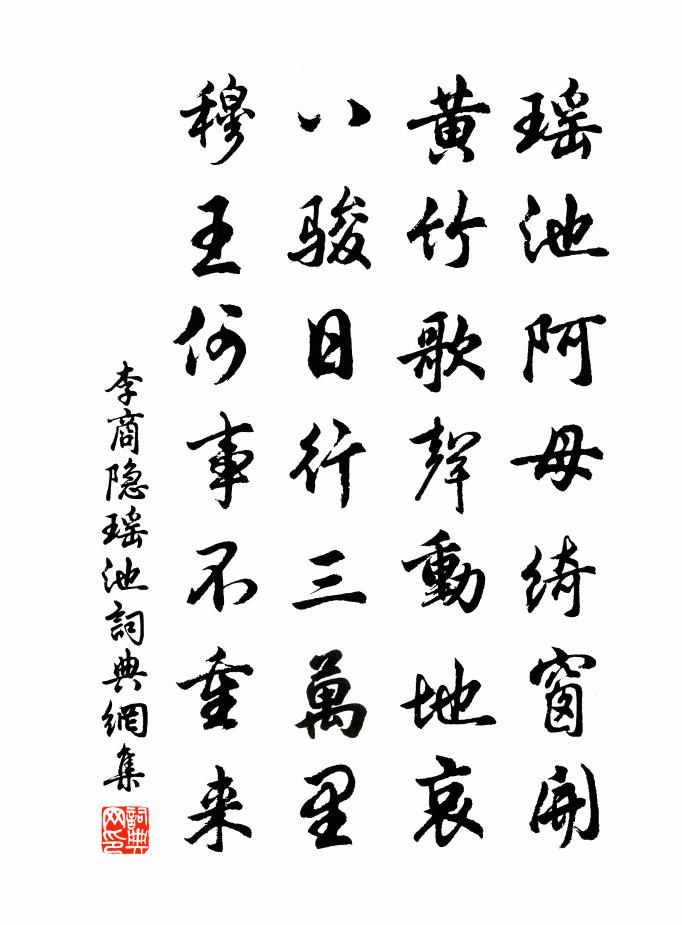 瑶池阿母綺窗開
黃竹歌聲動地哀
八駿日行三萬里
穆王何事不重来
李商隐瑶池詞典網集
詞典
网印